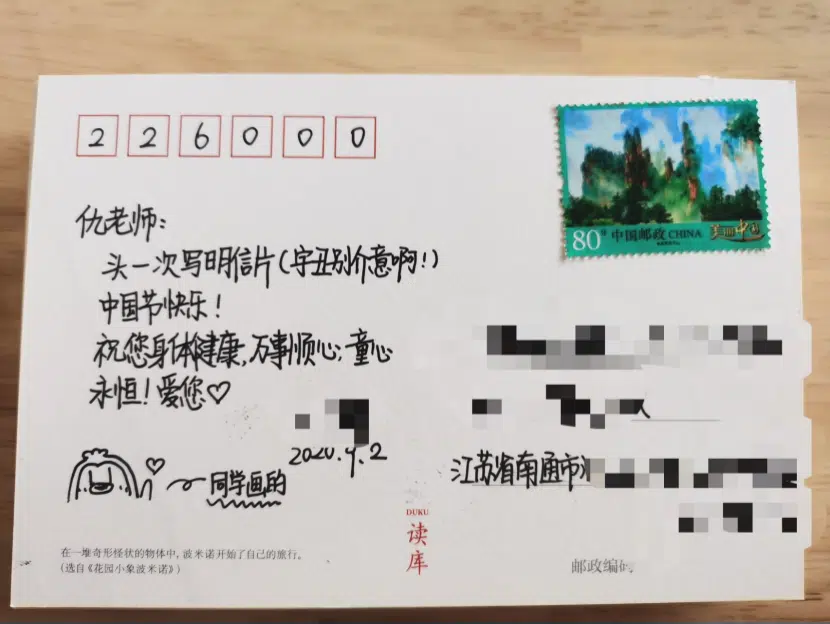 226000
80分 中国邮政 CHINA 美丽中国
仇老师:
头一次写明信片(字丑别介意啊!)
中国节快乐!
祝您身体健康,万事顺心;童心
永恒!爱您♡
2020.9.2
同学画的
江苏省南通市
DUKU
读库
在一堆奇形怪状的物体中,波米诺开始了自己的旅行。
(选自《花园小象波米诺》)
邮政编码